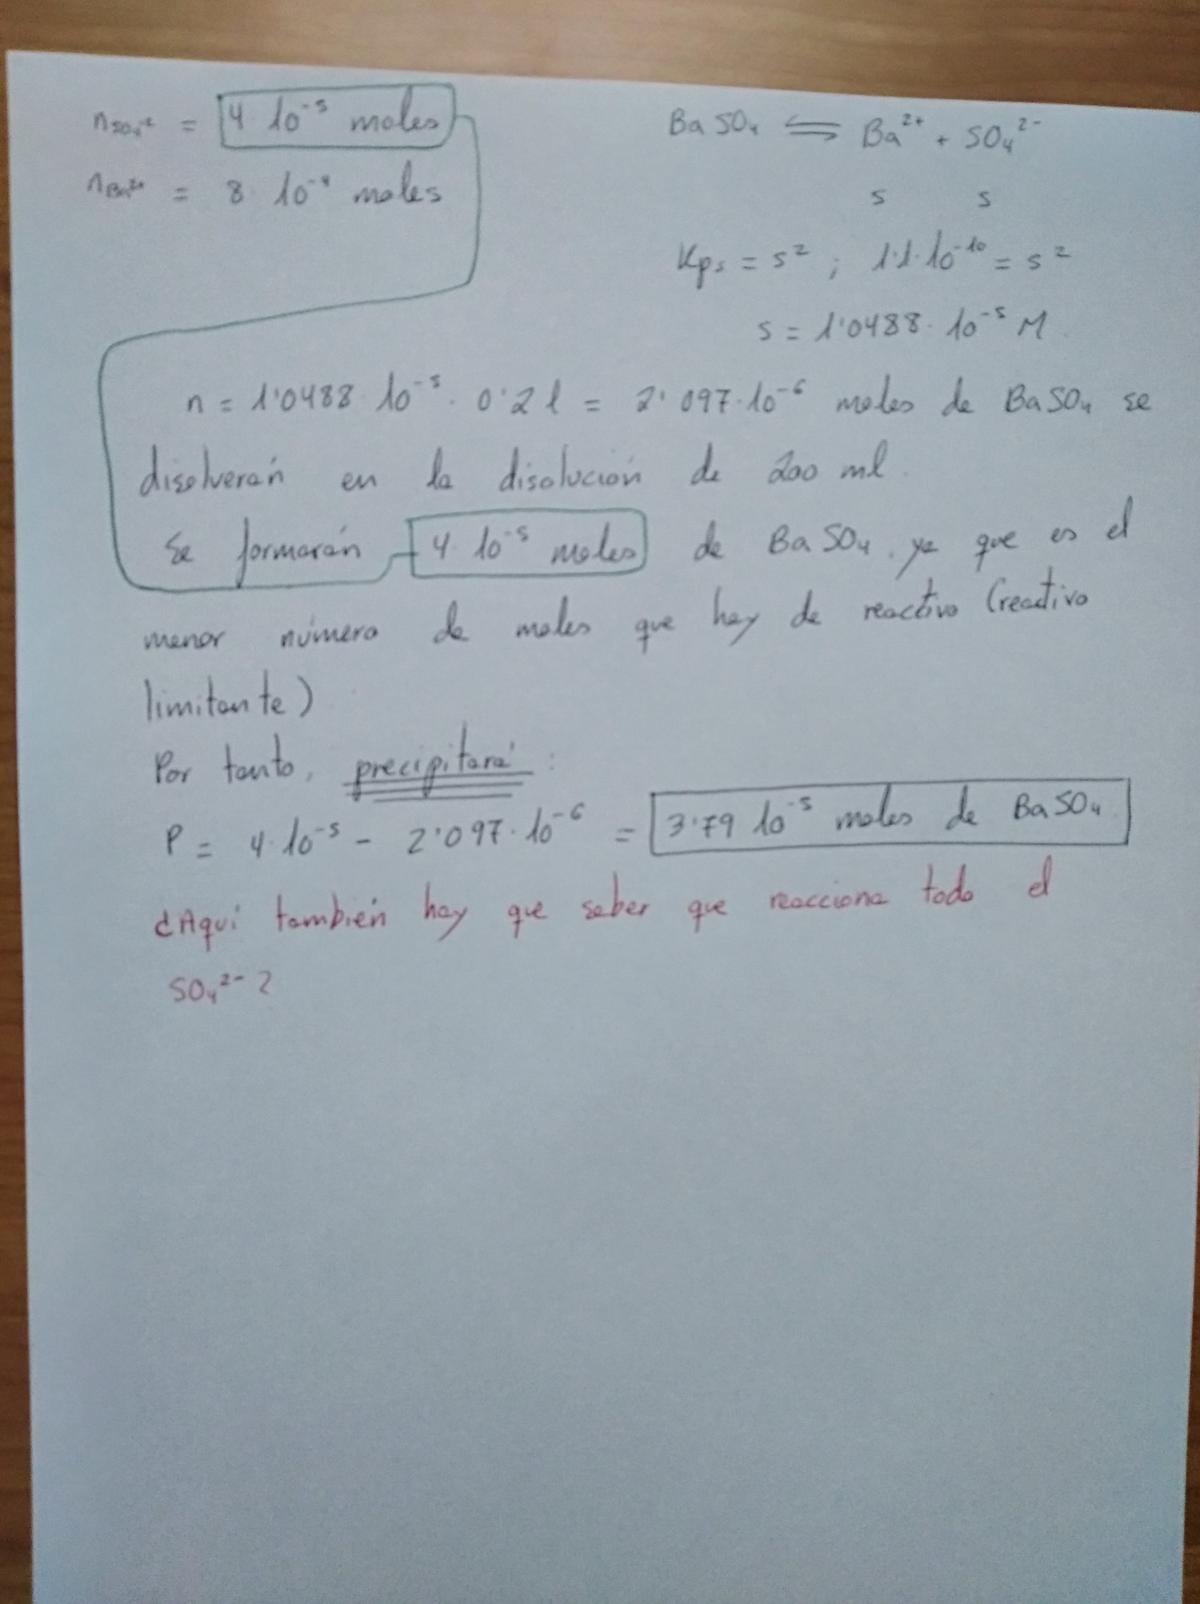 nSO₄⁻² = 4 · 10⁻⁵ moles
nBa²⁺ = 8 · 10⁻⁴ moles
BaSO₄ ⇌ Ba²⁺ + SO₄²⁻
s s
Kps = s² ; 1'1·10⁻¹⁰ = s²
s = 1'0488 · 10⁻⁵ M
n = 1'0488 · 10⁻⁵ · 0'2 l = 2'097·10⁻⁶ moles de BaSO₄ se
disolverán en la disolución de 200 ml.
Se formarán 4 · 10⁻⁵ moles de BaSO₄, ya que es el
menor número de moles que hay de reactivo (reactivo
limitante)
Por tanto, precipitará :
P = 4·10⁻⁵ - 2'097·10⁻⁶ = 3'79 10⁻⁵ moles de BaSO₄
¿Aquí también hay que saber que reacciona todo el
SO₄²⁻ ?